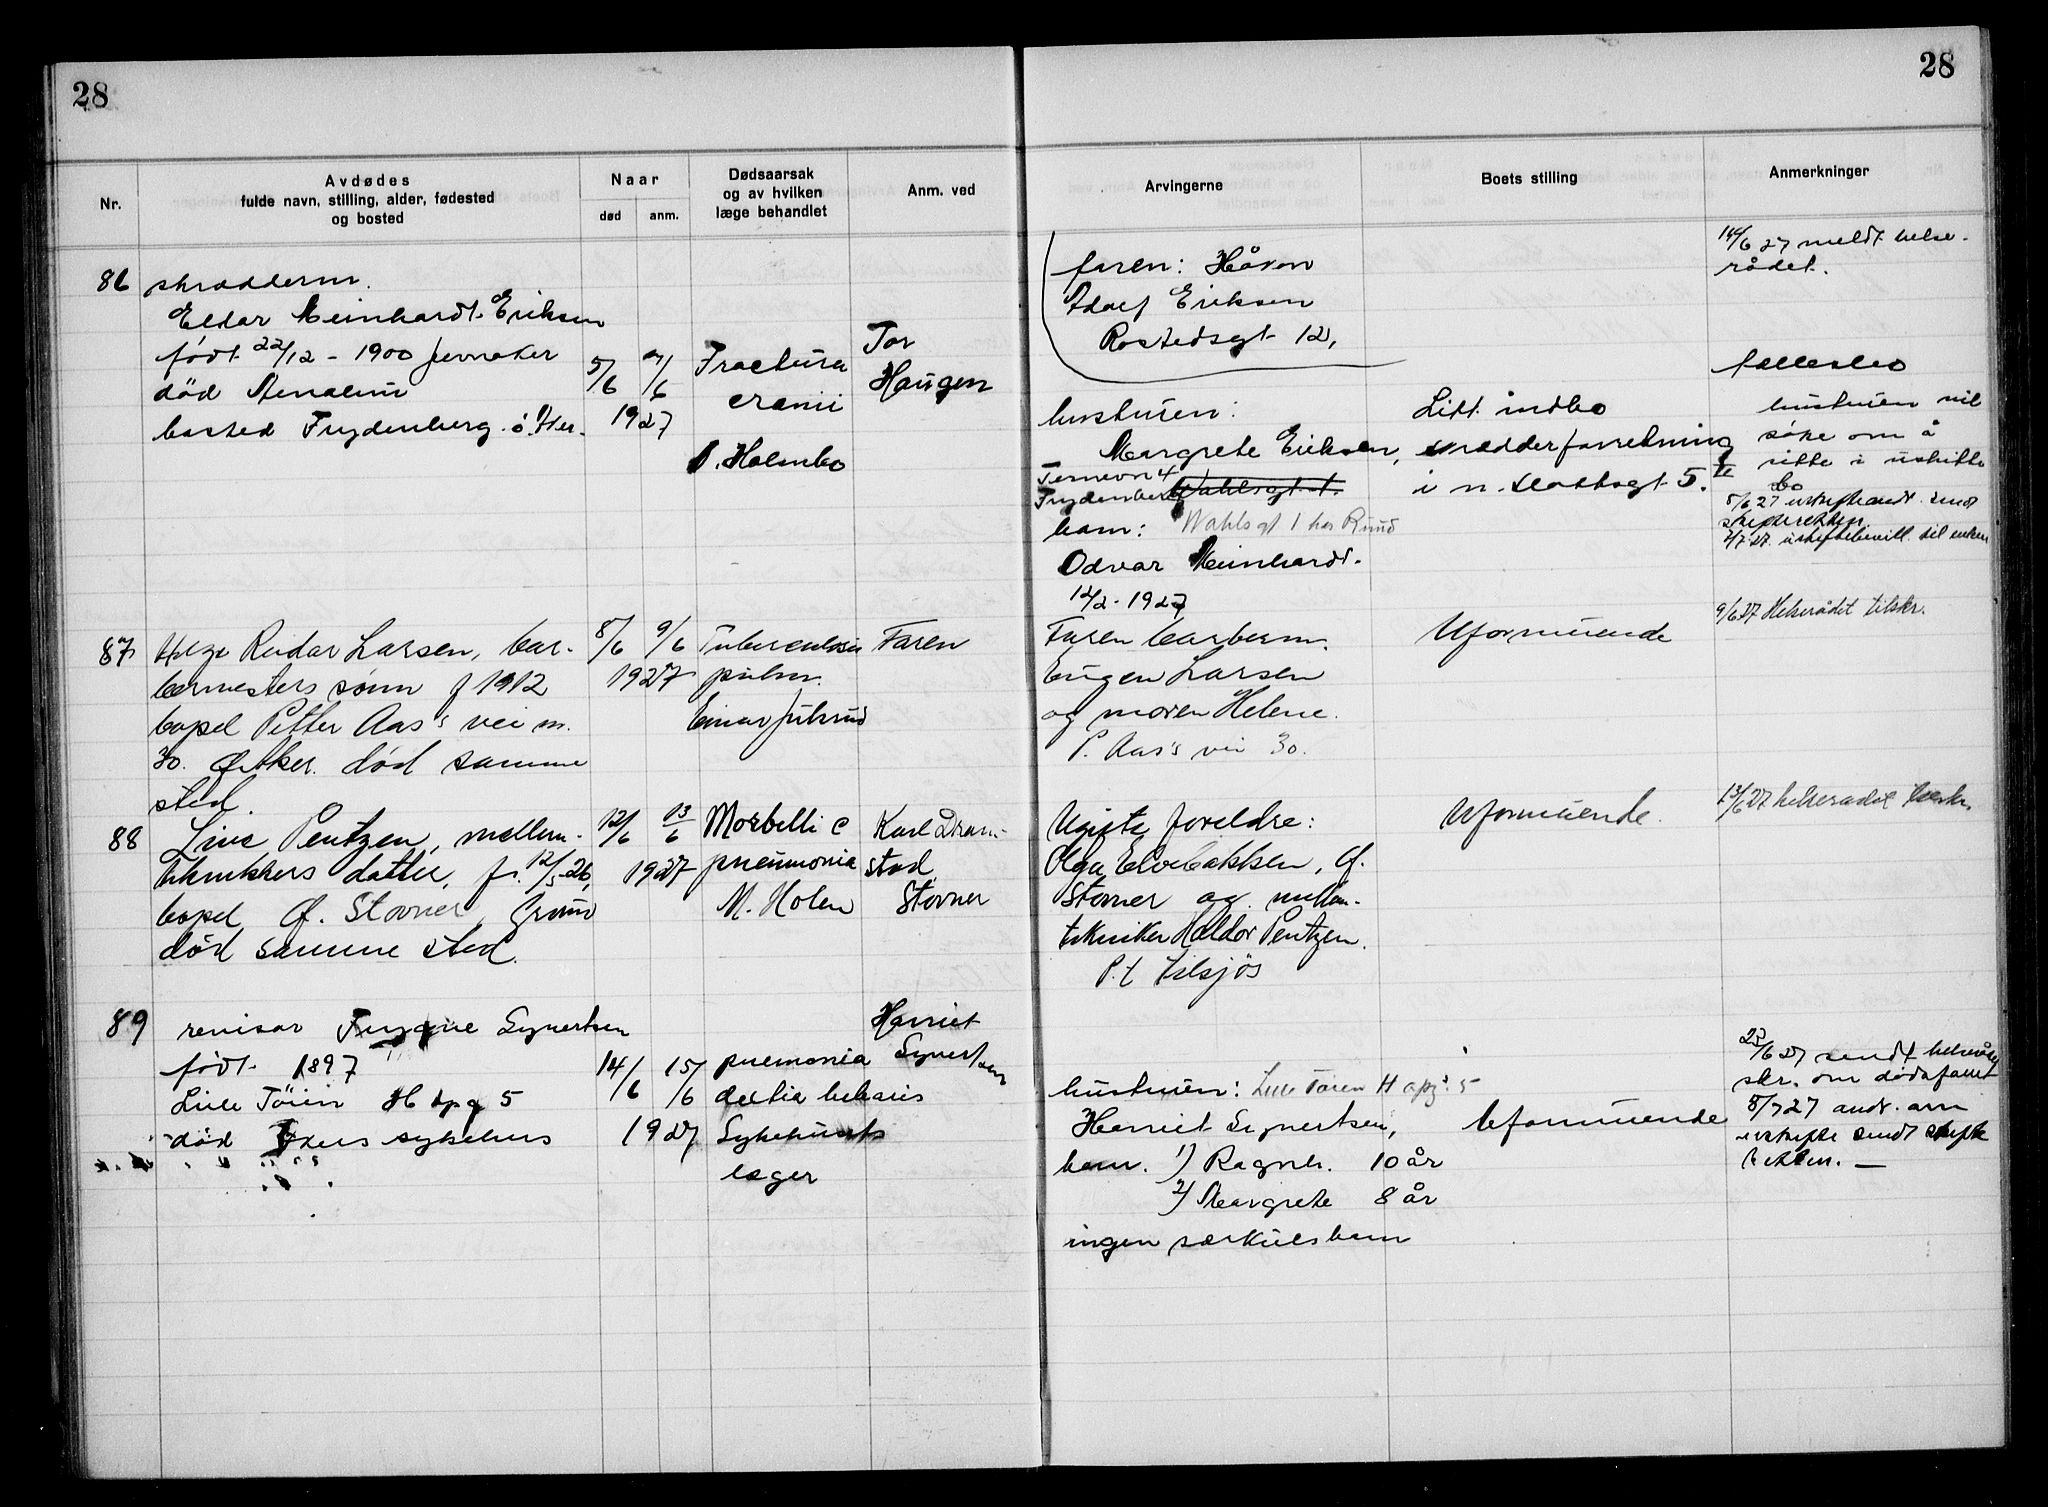 28
28
Nr.
Avdødes
fulde navn, stilling, alder, fødested
og bosted
Naar
død
anm.
Dødsaarsak
og av hvilken
læge behandlet
Anm. ved
Arvingerne
Boets stilling
Anmerkninger
86
Eldar Meinhardt Eriksen
født 22/12 - 1900 Jevnaker
død
bosted Frydenberg ö. Aker.
5/6
/6
1927
Fractura
cranii
Holmbo
Tor
Haugen
faren: Håkon
Adolf Eriksen
Rostedsgt 12,
hustruen:
Margrete Eriksen,
Frydenberg Wahlsgt 1.
barn: Wahlsgt 1 hos Ruud
Odvar Meinhardt.
12/2 - 1927
Litt indbo
skrædderforretning
i n. Slottsgt 5.
14/6 27 meldt helse-
rådet.
fællesbo
hustruen vil
søke om å
sitte i uskifte
bo
skifteretten
7/7 27. uskiftebevill. til enken
87
Helge Reidar Larsen, bar-
bermesters sønn f 1912
bopel Petter Aas's vei m.
30. Ø. Aker. død samme
sted.
8/6
9/6
1927
Tuberculosis
pulm.
Einar Julsrud
Faren
Faren barberm.
Eugen Larsen
og moren Helene.
P. Aas's vei 30.
Uformuende
9/6 27 Helserådet tilskr.
88
Live Pentzen, mellem-
teknikkers datter, f. 12/5-26,
bopel Ø. Stovner, Grorud
død samme sted.
12/6
13/6
1927
Morbilli c
pneumonia
M. Holen
Karl Dram-
stad
Stovner
Ugifte foreldre:
Olga Elvebakken, Ø.
Stovner og mellem-
tekniker Haldor Pentzen.
P.t
Uformuende.
13/6 27 helserådet tilskr.
89
revisor Trygve Syvertsen
født 1897
Lille Tøien H opg 5
død Akers sykehus
14/6
15/6
1927
pnemonia
dextra
Sykehusets
læger
Harriet
Syvertsen
hustruen: Lille Tøien H opg. 5
Harriet Syvertsen,
barn. 1) Ragnh. 10 år
2) Margrete 8 år
ingen særkulsbarn
Uformuende
23/6 27 sendt helseråds
skr. om dødsfallet
8/7 27 andr. om
uskifte sendt skifte
retten. —